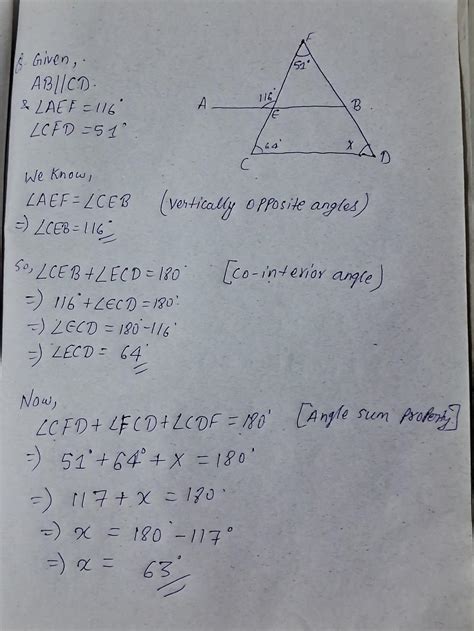 Given,
AB||CD.
& ∠AEF = 116°
∠CFD = 51°
F
51°
116°
A
E
B
C
64°
x
D
We Know,
∠AEF = ∠CEB (vertically opposite angles)
=) ∠CEB = 116°
So, ∠CEB + ∠ECD = 180° [Co-interior angle)
=) 116° + ∠ECD = 180°
=) ∠ECD = 180° - 116
=) ∠ECD = 64°
Now,
∠CFD + ∠FCD + ∠CDF = 180° [Angle sum property]
=) 51° + 64° + x = 180°
=) 117 + x = 180°
=) x = 180° - 117°
=) x = 63°